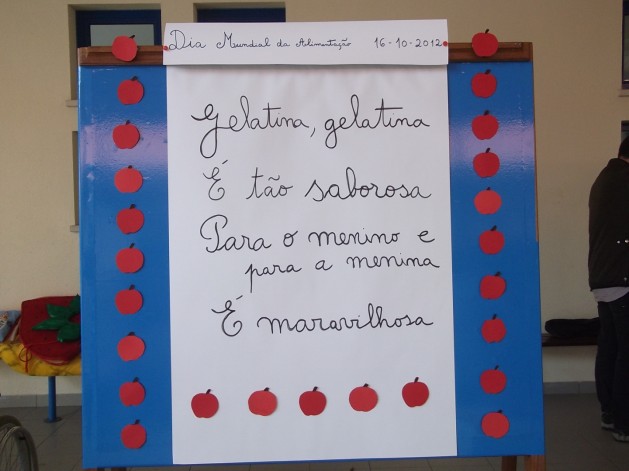 Dia Mundial da Alimentação 16-10-2012
Gelatina, gelatina
É tão saborosa
Para o menino e
para a menina
É maravilhosa